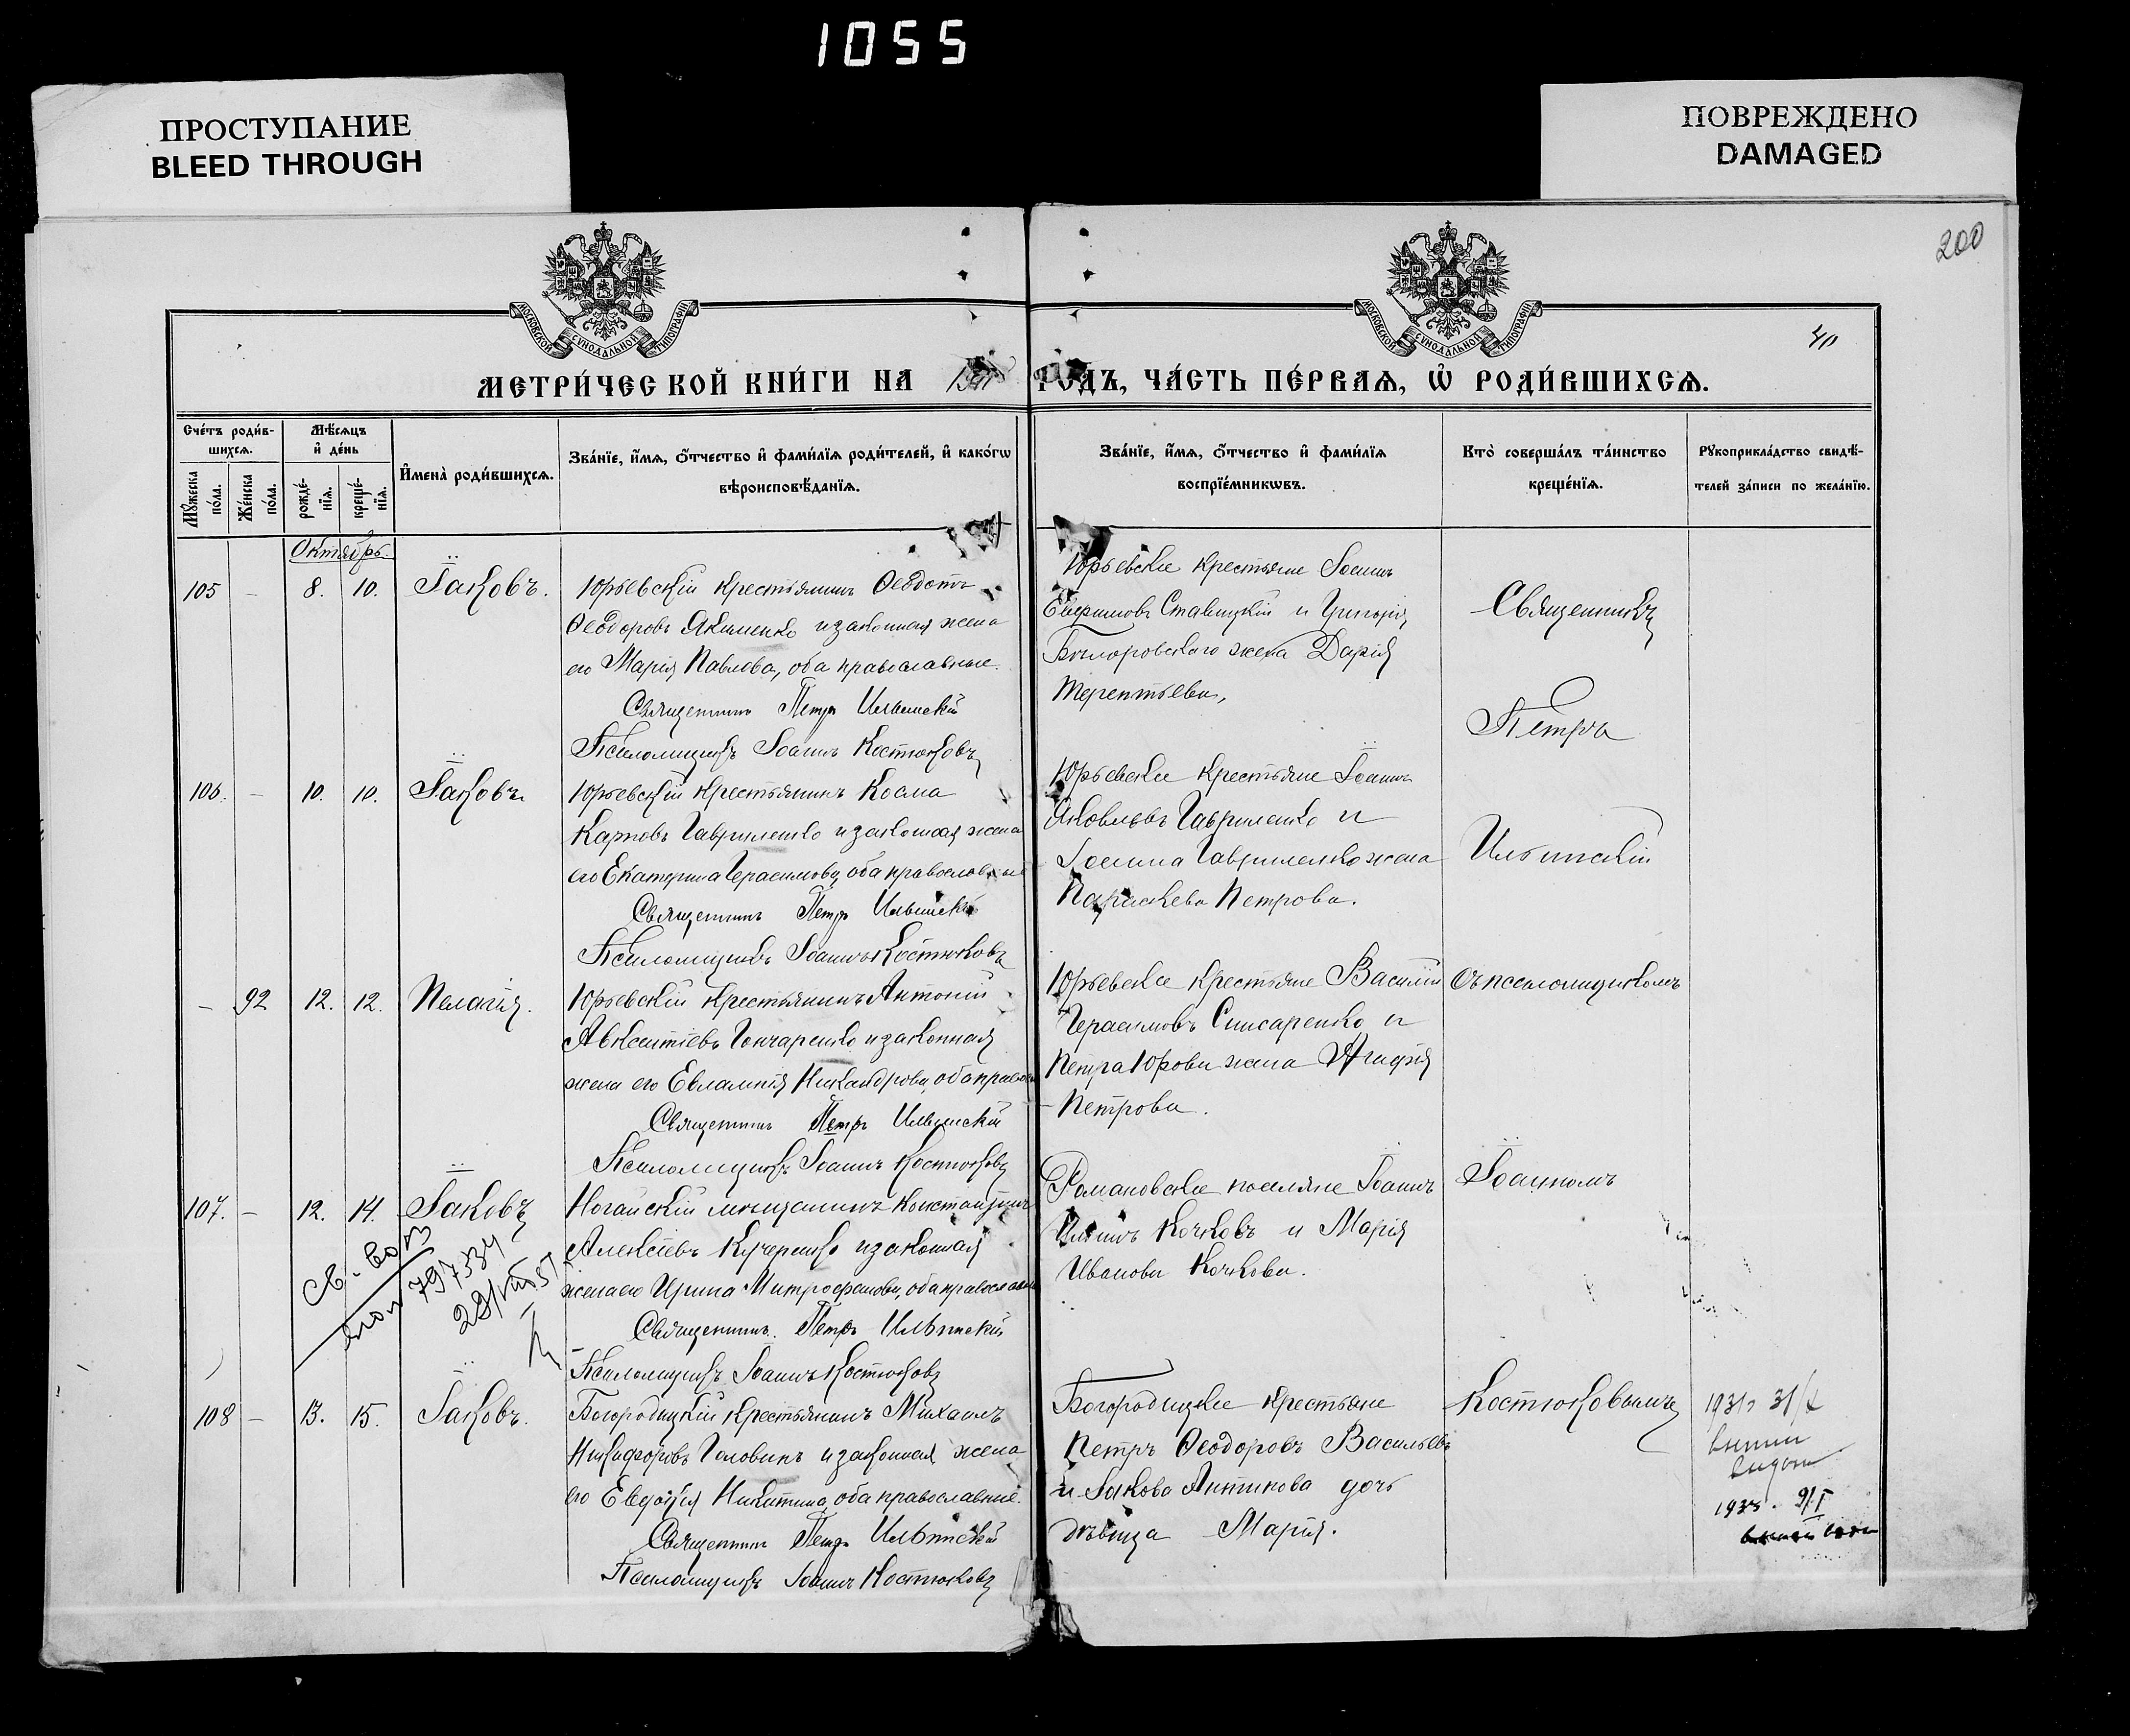 1055
ПРОСТУПАНИЕ
BLEED THROUGH
ПОВРЕЖДЕНО
DAMAGED
200
МОСКОВСКОЙ СУНОДАЛЬНОЙ ТИПОГРАФІИ
МОСКОВСКОЙ СУНОДАЛЬНОЙ ТИПОГРАФІИ
40
МЕТРИ́ЧЕСКОЙ КНИ́ГИ НА
ГОДЪ, ЧА́СТЬ ПЕ́РВАѦ, Ѿ РОДИ́ВШИХСѦ.
Сче́тъ роди́в-
шихсѧ.
Мѣ́сѧцъ
и҆ де́нь
Мꙋ́жеска
по́ла.
Же́нска
по́ла.
рожде́-
нїѧ.
креще́-
нїѧ.
И҆мена̀ роди́вшихсѧ.
Зва́нїе, и҆́мѧ, о҆́тчество и҆ фами́лїѧ роди́телей, и҆ како́гѡ
вѣроисповѣ́данїѧ.
Зва́нїе, и҆́мѧ, о҆́тчество и҆ фами́лїѧ
воспрїе́мникѡвъ.
Кто̀ соверша́лъ та́инство
креще́нїѧ.
Рꙋкоприкла́дство свидѣ́-
телей за́писи по жела́нїю.
Октябрь.
105 - 8. 10. Іаковъ.
Юрьевскій крестьянинъ Ѳеодотъ
Ѳеодоровъ Якименко и законная жена
его Марія Павлова, оба православные.
Священникъ Петръ Ильинскій
Псаломщикъ Іоаннъ Костюковъ
Юрьевскіе крестьяне Іоаннъ
Евфимовъ Ставицкій и Григорія
жена Дарія
Терентьева,
Священникъ
Петръ
106. - 10. 10. Іаковъ.
Юрьевскій крестьянинъ Косма
Карповъ Гавриленко и законная жена
его Екатерина Герасимова, оба православные
Священникъ Петръ Ильинскій
Псаломщикъ Іоаннъ Костюковъ
Юрьевскіе крестьяне Іоаннъ
Яковлевъ Гавриленко и
Іоанна Гавриленко жена
Параскева Петрова.
Ильинскій
- 92 12. 12. Пелагія.
Юрьевскій крестьянинъ Антоній
Авксентіевъ Гончаренко и законная
жена его Евлампія Никандрова, оба правосл
Священникъ Петръ Ильинскій
Псаломщикъ Іоаннъ Костюковъ
Юрьевскіе крестьяне Василій
Герасимовъ Слисаренко и
Петра Юрова жена Агафія
Петрова.
съ псаломщикомъ
107. - 12. 14. Іаковъ
Ногайскій мѣщанинъ Константинъ
Алексѣевъ Кучеренко и законная
жена его Ирина Митрофанова, оба православные
Священникъ Петръ Ильинскій
Псаломщикъ Іоаннъ Костюковъ
Романовскіе поселяне Іоаннъ
Кочковъ и Марія
Иванова Кочкова.
Іоанномъ
797334
108 - 13. 15. Іаковъ.
Богородицкій крестьянинъ Михаилъ
Никифоровъ Головинъ и законная жена
его Евдокія Никитина, оба православные.
Священникъ Петръ Ильинскій
Псаломщикъ Іоаннъ Костюковъ
Богородицкіе крестьяне
Петръ Ѳеодоровъ Васильевъ
и Іакова Антипова дочь
дѣвица Марія.
Костюковымъ